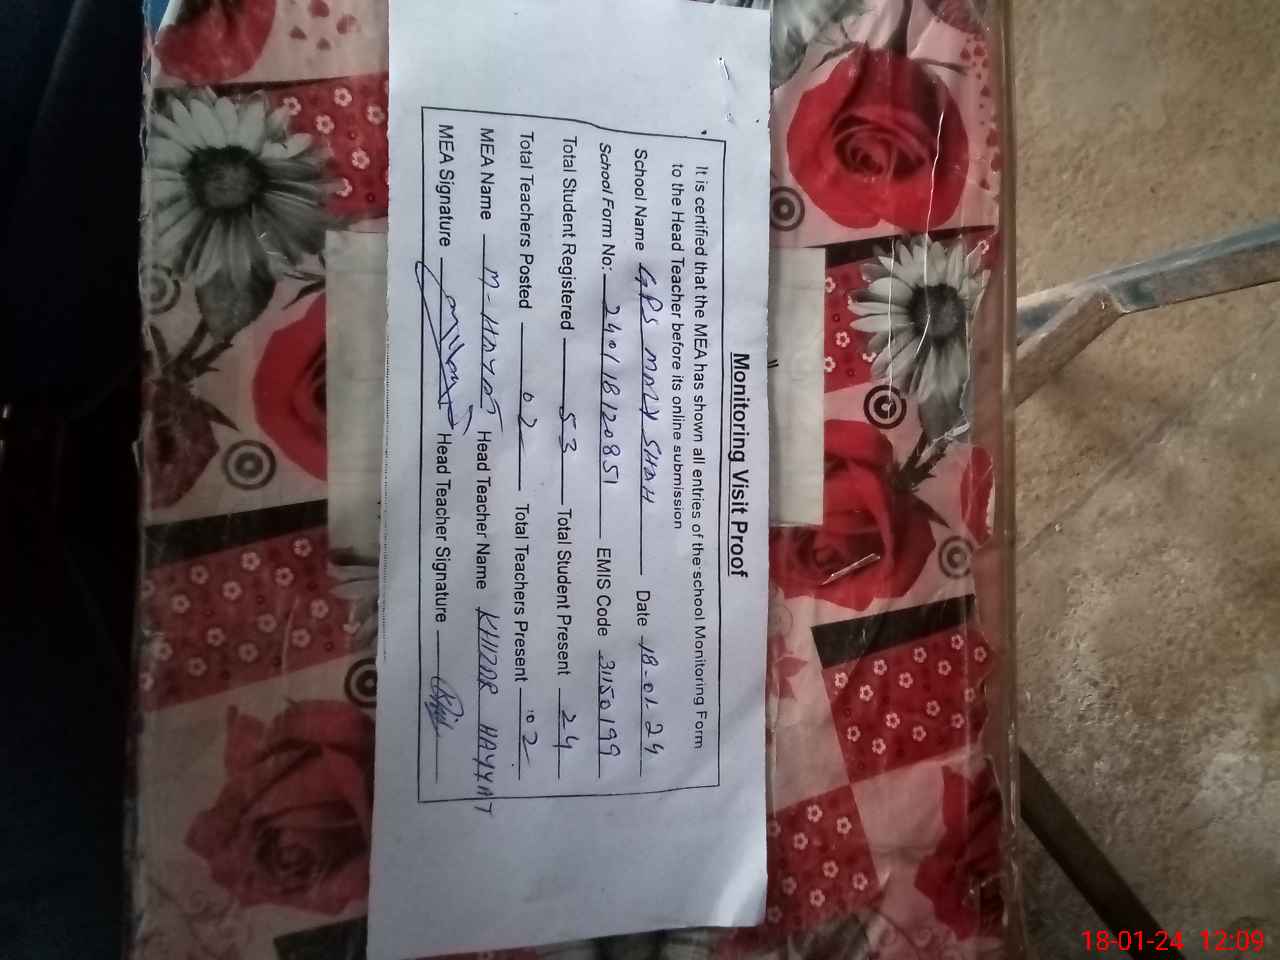 Monitoring Visit Proof
It is certified that the MEA has shown all entries of the school Monitoring Form
to the Head Teacher before its online submission
School Name GPS MORY SHAH Date 18-01-24
School Form No: 240118120851 EMIS Code 31150199
Total Student Registered 53 Total Student Present 24
Total Teachers Posted 02 Total Teachers Present 02
MEA Name M-HAYAT Head Teacher Name KHIZAR HAYYAT
MEA Signature Head Teacher Signature
18-01-24 12:09